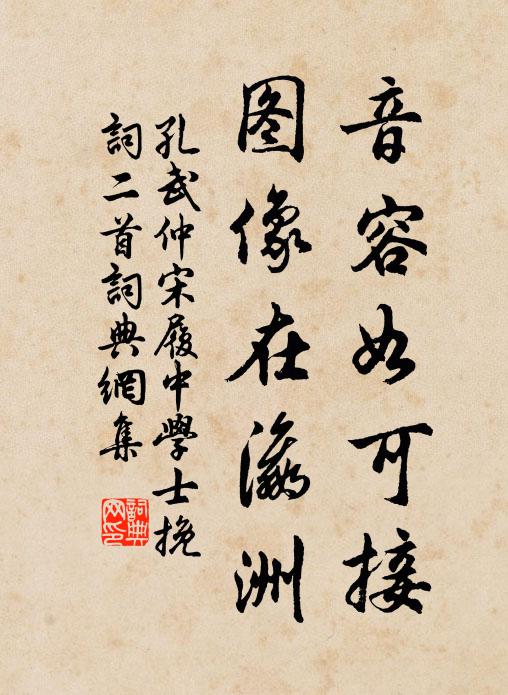 音容如可接
图像在瀛洲
孔武仲宋履中學士挽
詞二首詞典網集
詞典
网印